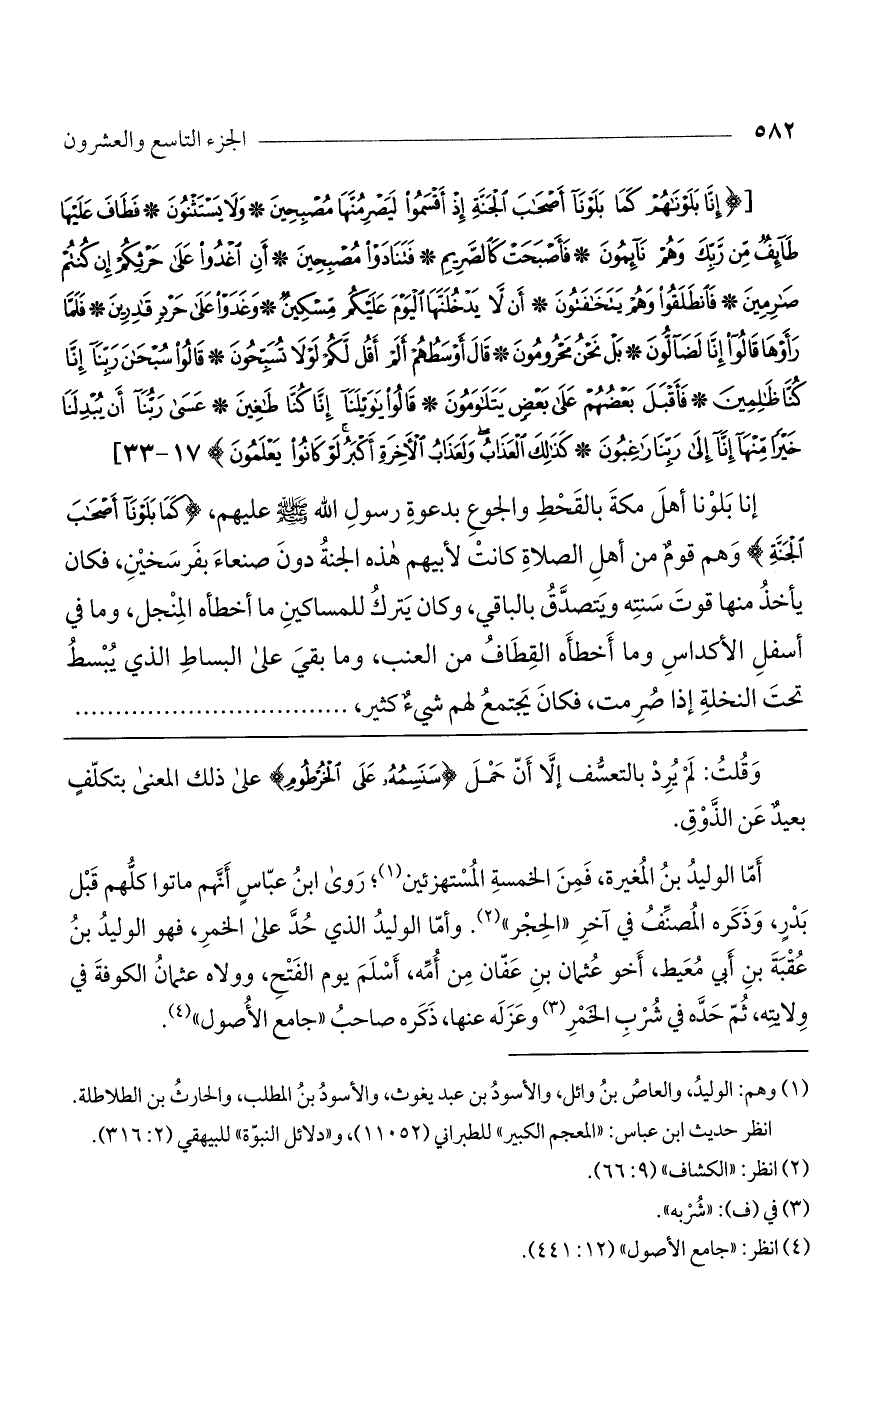 ٥٨٢ الجزء التاسع والعشرون
[﴿ إِنَّا بَلَوْنَٰهُمْ كَمَا بَلَوْنَآ أَصْحَٰبَ ٱلْجَنَّةِ إِذْ أَقْسَمُوا۟ لَيَصْرِمُنَّهَا مُصْبِحِينَ * وَلَا يَسْتَثْنُونَ * فَطَافَ عَلَيْهَا
طَآئِفٌ مِّن رَّبِّكَ وَهُمْ نَآئِمُونَ * فَأَصْبَحَتْ كَٱلصَّرِيمِ * فَتَنَادَوْا۟ مُصْبِحِينَ * أَنِ ٱغْدُوا۟ عَلَىٰ حَرْثِكُمْ إِن كُنتُمْ
صَٰرِمِينَ * فَٱنطَلَقُوا۟ وَهُمْ يَتَخَٰفَتُونَ * أَن لَّا يَدْخُلَنَّهَا ٱلْيَوْمَ عَلَيْكُم مِّسْكِينٌ * وَغَدَوْا۟ عَلَىٰ حَرْدٍ قَٰدِرِينَ * فَلَمَّا
رَأَوْهَا قَالُوٓا۟ إِنَّا لَضَآلُّونَ * بَلْ نَحْنُ مَحْرُومُونَ * قَالَ أَوْسَطُهُمْ أَلَمْ أَقُل لَّكُمْ لَوْلَا تُسَبِّحُونَ * قَالُوا۟ سُبْحَٰنَ رَبِّنَآ إِنَّا
كُنَّا ظَٰلِمِينَ * فَأَقْبَلَ بَعْضُهُمْ عَلَىٰ بَعْضٍ يَتَلَٰوَمُونَ * قَالُوا۟ يَٰوَيْلَنَآ إِنَّا كُنَّا طَٰغِينَ * عَسَىٰ رَبُّنَآ أَن يُبْدِلَنَا
خَيْرًا مِّنْهَآ إِنَّآ إِلَىٰ رَبِّنَا رَٰغِبُونَ * كَذَٰلِكَ ٱلْعَذَابُ ۖ وَلَعَذَابُ ٱلْءَاخِرَةِ أَكْبَرُ ۚ لَوْ كَانُوا۟ يَعْلَمُونَ ﴾ ١٧-٣٣]
إنا بَلَوْنا أهلَ مكةَ بالقَحْطِ والجوعِ بدعوةِ رسولِ الله ﷺ عليهم، ﴿كَمَا بَلَوْنَآ أَصْحَٰبَ
ٱلْجَنَّةِ﴾ وَهم قومٌ من أهلِ الصلاةِ كانتْ لأبيهم هٰذه الجنةُ دونَ صنعاءَ بفَرسَخَيْنِ، فكان
يأخذُ منها قوتَ سَنتِه ويَتصدَّقُ بالباقي، وكان يَتركُ للمساكينِ ما أخطأه المِنْجل، وما في
أسفلِ الأكداسِ وما أَخطأَه القِطَافُ من العنب، وما بقيَ علىٰ البساطِ الذي يُبْسطُ
تحتَ النخلةِ إذا صُرِمت، فكانَ يَجتمعُ لهم شيءٌ كثير، ..................................
وَقُلتُ: لَمْ يُرِدْ بالتعسُّف إلَّا أَنّ حَمْلَ ﴿سَنَسِمُهُۥ عَلَى ٱلْخُرْطُومِ﴾ علىٰ ذلك المعنىٰ بتكلّفٍ
بعيدٌ عَن الذَّوْقِ.
أَمّا الوليدُ بنُ المُغيرة، فَمِنَ الخمسةِ المُسْتهزئين(١)؛ رَوىٰ ابنُ عبّاسٍ أَنَّهم ماتوا كلُّهم قَبْل
بَدْرٍ، وَذَكَره المُصنِّفُ في آخرِ «الحِجْر»(٢). وأمّا الوليدُ الذي حُدَّ علىٰ الخمرِ، فهو الوليدُ بنُ
عُقْبَةَ بنِ أَبي مُعَيط، أَخو عُثمان بنِ عَفّان مِن أُمِّه، أَسْلَمَ يوم الفَتْحِ، وولاه عثمانُ الكوفةَ في
وِلايتِه، ثُمّ حَدَّه في شُرْبِ الخَمْرِ(٣) وعَزَلَه عنها، ذَكَره صاحبُ «جامع الأُصول»(٤).
(١) وهم: الوليدُ، والعاصُ بنُ وائل، والأسودُ بن عبد يغوث، والأسودُ بنُ المطلب، والحارثُ بن الطلاطلة.
انظر حديث ابن عباس: «المعجم الكبير» للطبراني (١١٠٥٢)، و«دلائل النبوّة» للبيهقي (٢: ٣١٦).
(٢) انظر: «الكشاف» (٩: ٦٦).
(٣) في (ف): «شُرْبه».
(٤) انظر: «جامع الأصول» (١٢: ٤٤١).